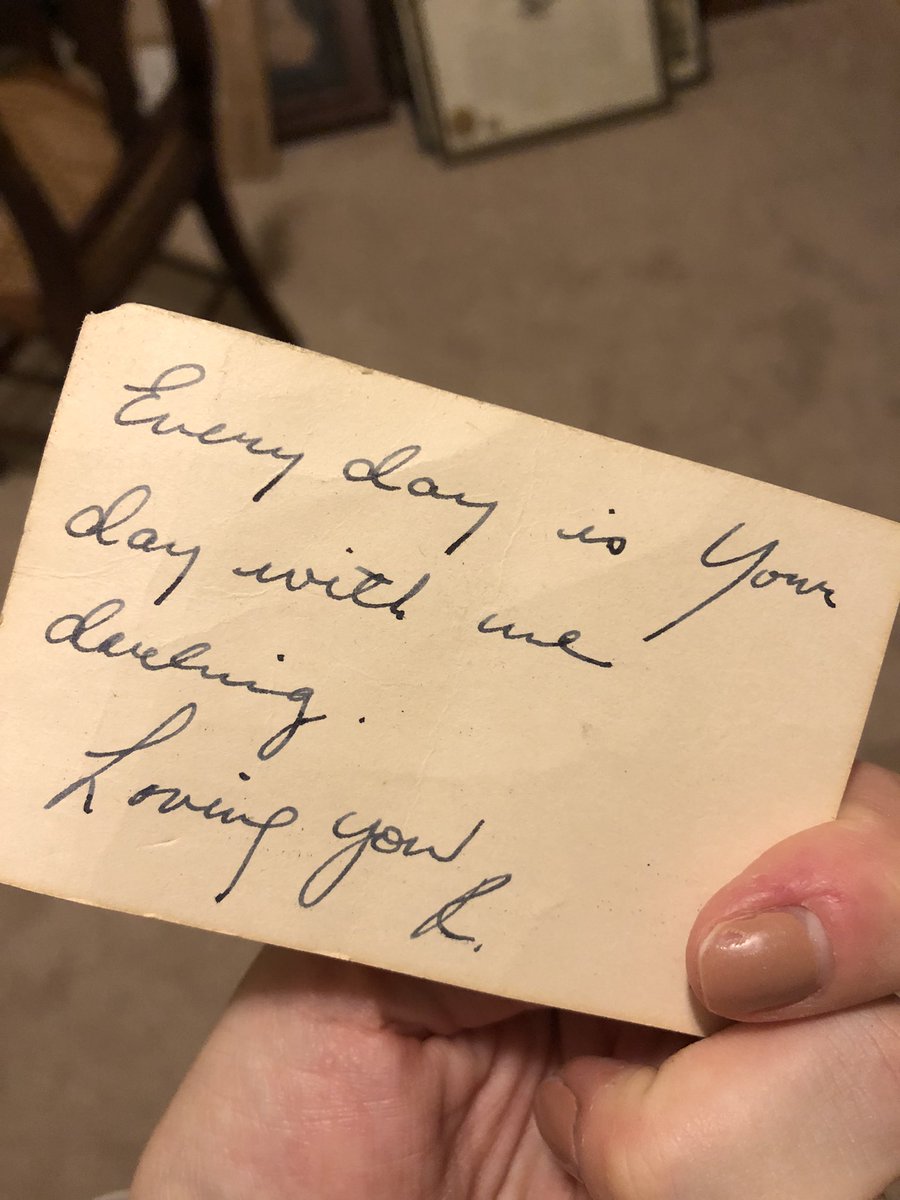 Every day is Your
day with me
darling.
Loving you
R.